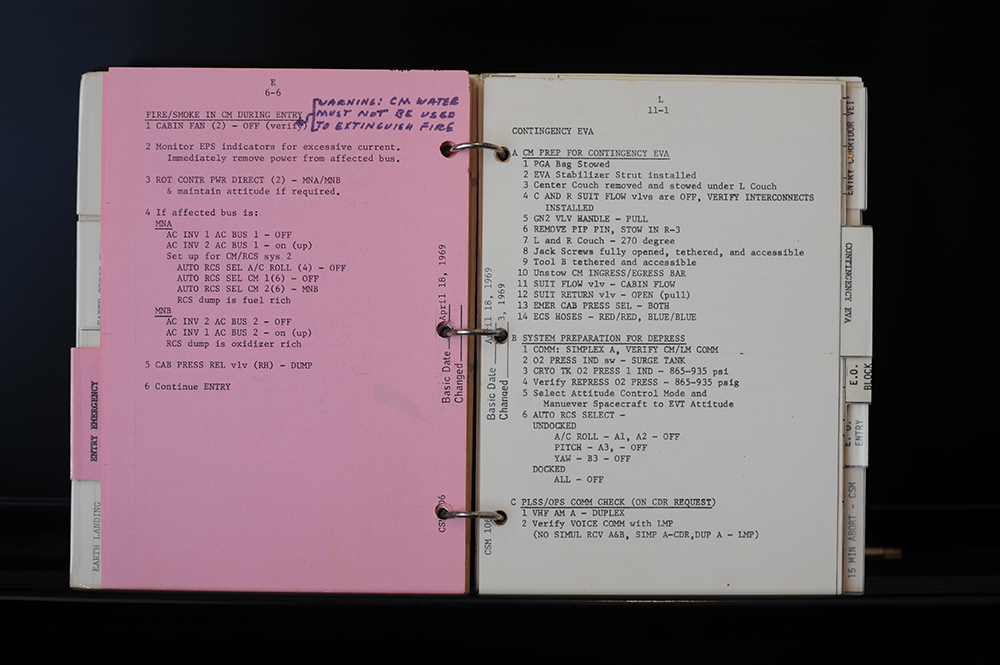 E
6-6
WARNING: CM WATER
MUST NOT BE USED
TO EXTINGUISH FIRE
FIRE/SMOKE IN CM DURING ENTRY
1 CABIN FAN (2) - OFF (verify)
2 Monitor EPS indicators for excessive current.
Immediately remove power from affected bus.
3 ROT CONTR PWR DIRECT (2) - MNA/MNB
& maintain attitude if required.
4 If affected bus is:
MNA
AC INV 1 AC BUS 1 - OFF
AC INV 2 AC BUS 1 - on (up)
Set up for CM/RCS sys 2
AUTO RCS SEL A/C ROLL (4) - OFF
AUTO RCS SEL CM 1(6) - OFF
AUTO RCS SEL CM 2(6) - MNB
RCS dump is fuel rich
MNB
AC INV 2 AC BUS 2 - OFF
AC INV 1 AC BUS 2 - on (up)
RCS dump is oxidizer rich
5 CAB PRESS REL vlv (RH) - DUMP
6 Continue ENTRY
Basic Date April 18, 1969
Changed
ENTRY EMERGENCY
EARTH LANDING
L
11-1
CONTINGENCY EVA
A CM PREP FOR CONTINGENCY EVA
1 PGA Bag Stowed
2 EVA Stabilizer Strut installed
3 Center Couch removed and stowed under L Couch
4 C AND R SUIT FLOW vlvs are OFF, VERIFY INTERCONNECTS
INSTALLED
5 GN2 VLV HANDLE - PULL
6 REMOVE PIP PIN, STOW IN R-3
7 L and R Couch - 270 degree
8 Jack Screws fully opened, tethered, and accessible
9 Tool B tethered and accessible
10 Unstow CM INGRESS/EGRESS BAR
11 SUIT FLOW vlv - CABIN FLOW
12 SUIT RETURN vlv - OPEN (pull)
13 EMER CAB PRESS SEL - BOTH
14 ECS HOSES - RED/RED, BLUE/BLUE
B SYSTEM PREPARATION FOR DEPRESS
1 COMM: SIMPLEX A, VERIFY CM/LM COMM
2 O2 PRESS IND sw - SURGE TANK
3 CRYO TK O2 PRESS 1 IND - 865-935 psi
4 Verify REPRESS O2 PRESS - 865-935 psig
5 Select Attitude Control Mode and
Manuever Spacecraft to EVT Attitude
6 AUTO RCS SELECT -
UNDOCKED
A/C ROLL - A1, A2 - OFF
PITCH - A3, - OFF
YAW - B3 - OFF
DOCKED
ALL - OFF
C PLSS/OPS COMM CHECK (ON CDR REQUEST)
1 VHF AM A - DUPLEX
2 Verify VOICE COMM with LMP
(NO SIMUL RCV A&B, SIMP A-CDR,DUP A - LMP)
Basic Date 18, 1969
Changed 3, 1969
CSM 106
ENTRY CORRIDOR
CONTINGENCY EVA
E.O.
BLOCK
ENTRY
15 MIN ABORT - CSM